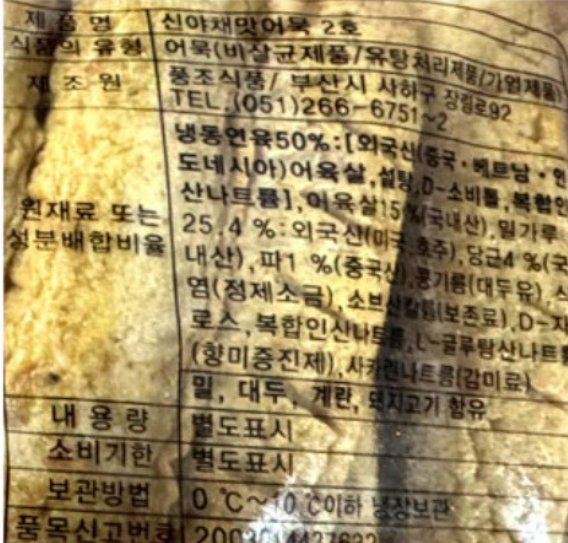 제 품 명 신야채맛어묵 2호
식품의 유형 어묵(비살균제품/유탕처리제품/가열제품)
제 조 원 풍조식품/ 부산시 사하구 장림로92
TEL.(051)266-6751~2
원재료 또는 성분배합비율
냉동연육50%:[외국산(중국·베트남·인
도네시아)어육살,설탕,D-소비톨,복합인
산나트륨],어육살15%(국내산),밀가루
25.4 %:외국산(미국,호주),당근4 %(국
내산),파1 %(중국산),콩기름(대두유),식
염(정제소금),소브산칼륨(보존료),D-자
로스,복합인산나트륨,L-글루탐산나트륨
(향미증진제),사카린나트륨(감미료)
밀, 대두, 계란, 돼지고기 함유
내 용 량 별도표시
소비기한 별도표시
보관방법 0 ℃~10 ℃이하 냉장보관
품목신고번호